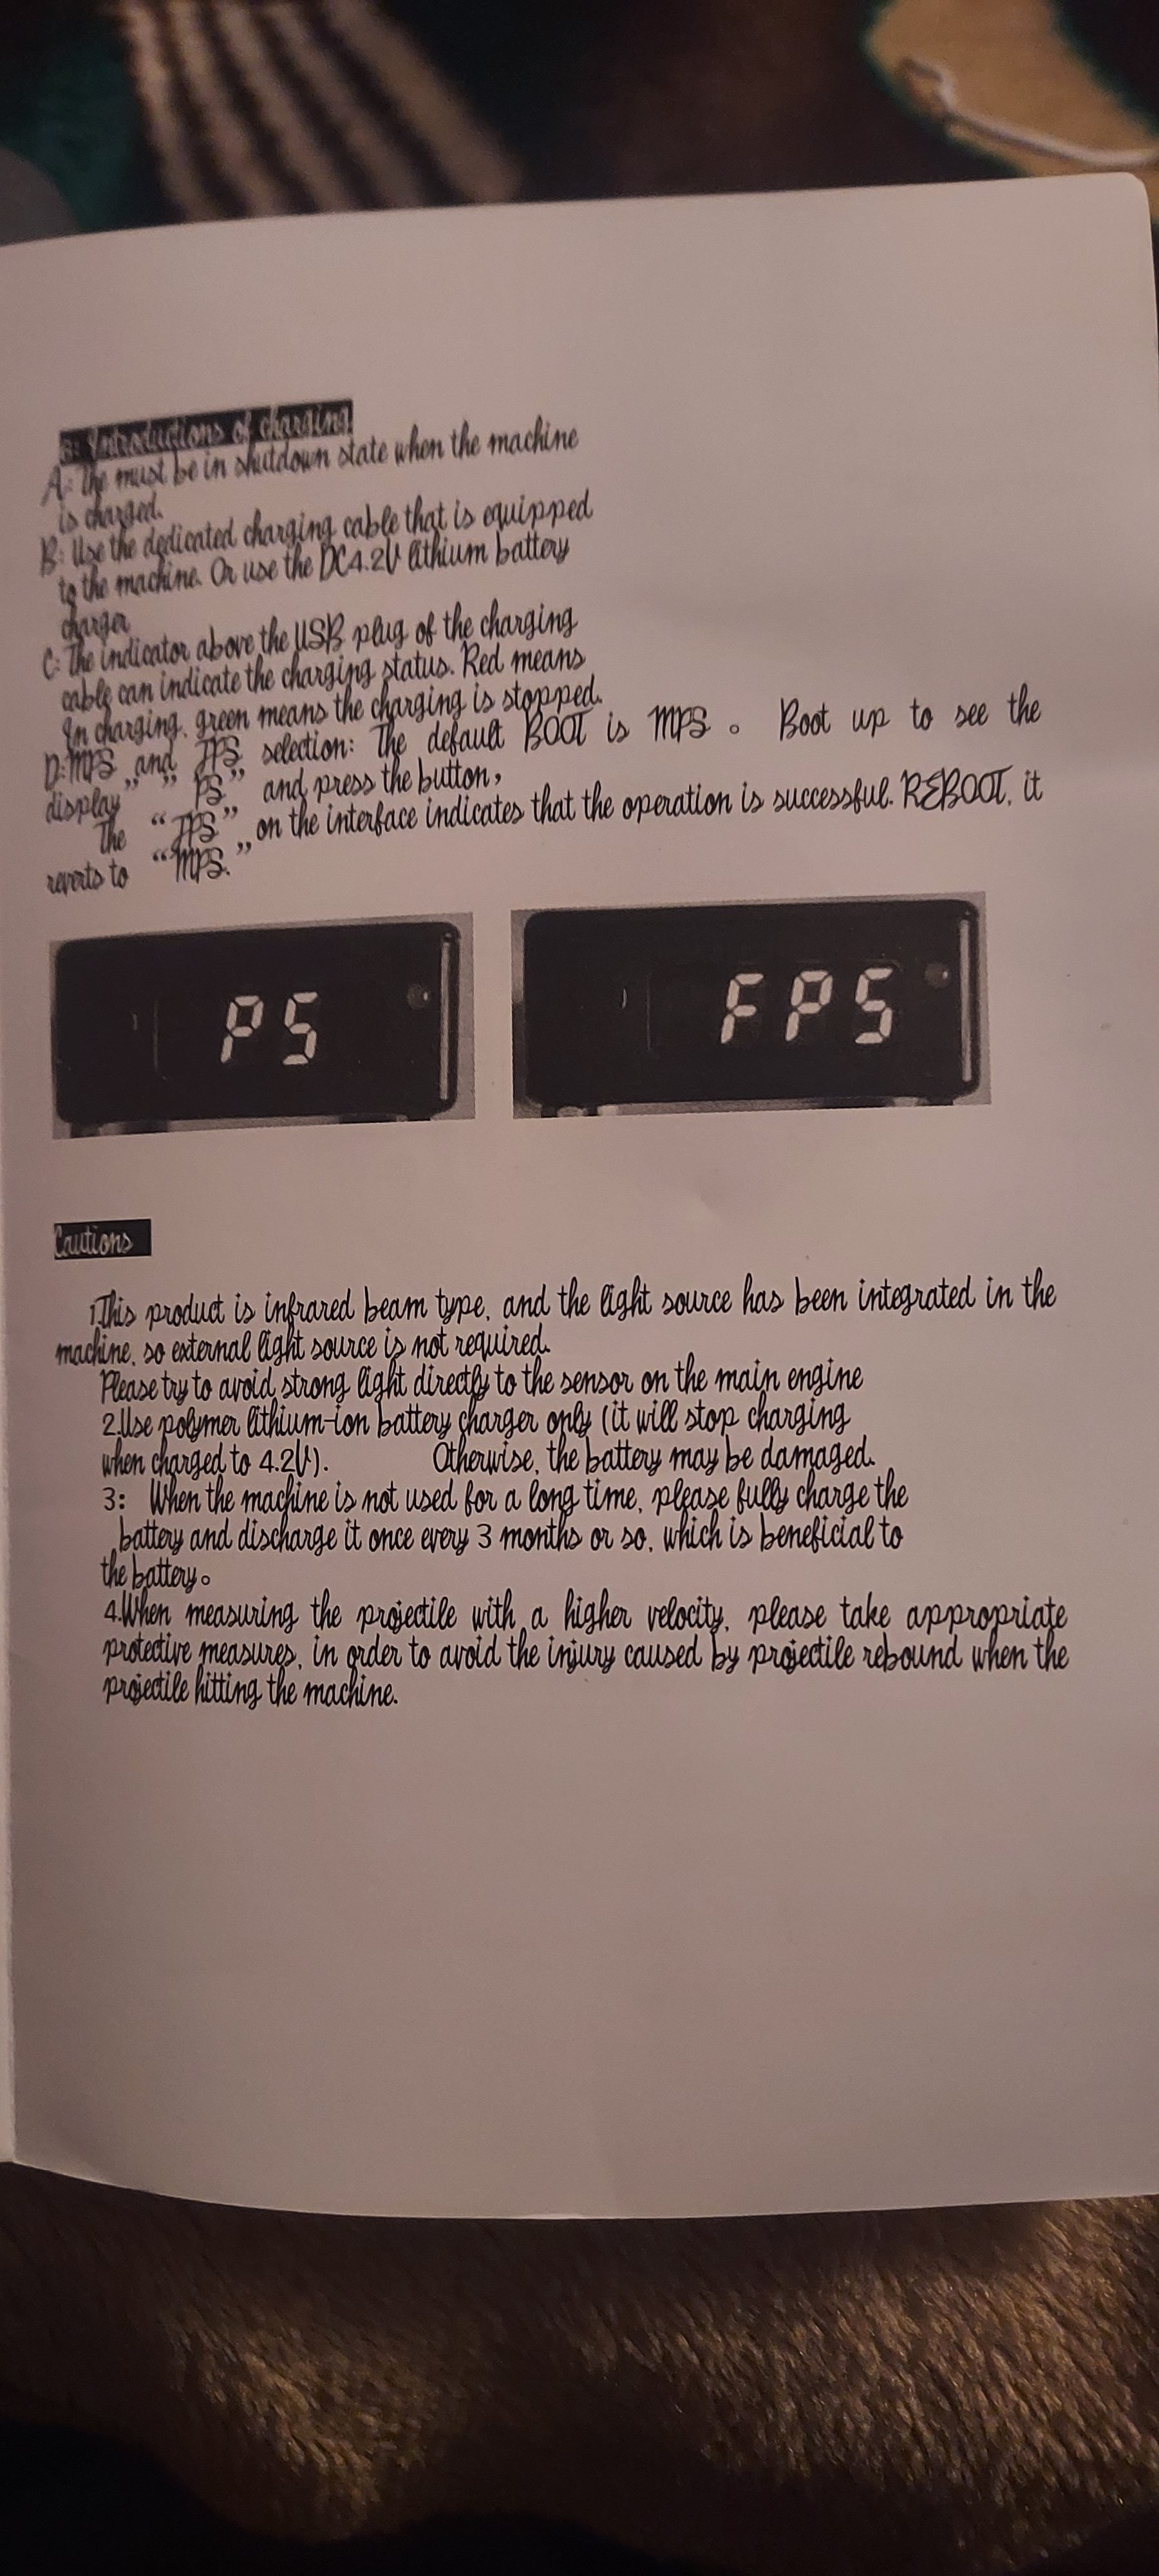 3: Introductions of charging
A: The must be in shutdown state when the machine
is charged.
B: Use the dedicated charging cable that is equipped
to the machine. Or use the DC4.2V lithium battery
charger
C: The indicator above the USB plug of the charging
cable can indicate the charging status. Red means
In charging, green means the charging is stopped.
D:MPS and FPS selection: The default BOOT is MPS 。 Boot up to see the
display „ ” PS” and press the button,
The “FPS” on the interface indicates that the operation is successful. REBOOT, it
reverts to “MPS.”
PS
FPS
Cautions
1.This product is infrared beam type, and the light source has been integrated in the
machine, so external light source is not required.
Please try to avoid strong light directly to the sensor on the main engine
2.Use polymer lithium-ion battery charger only (it will stop charging
when charged to 4.2V). Otherwise, the battery may be damaged.
3: When the machine is not used for a long time, please fully charge the
battery and discharge it once every 3 months or so, which is beneficial to
the battery。
4.When measuring the projectile with a higher velocity, please take appropriate
protective measures, in order to avoid the injury caused by projectile rebound when the
projectile hitting the machine.